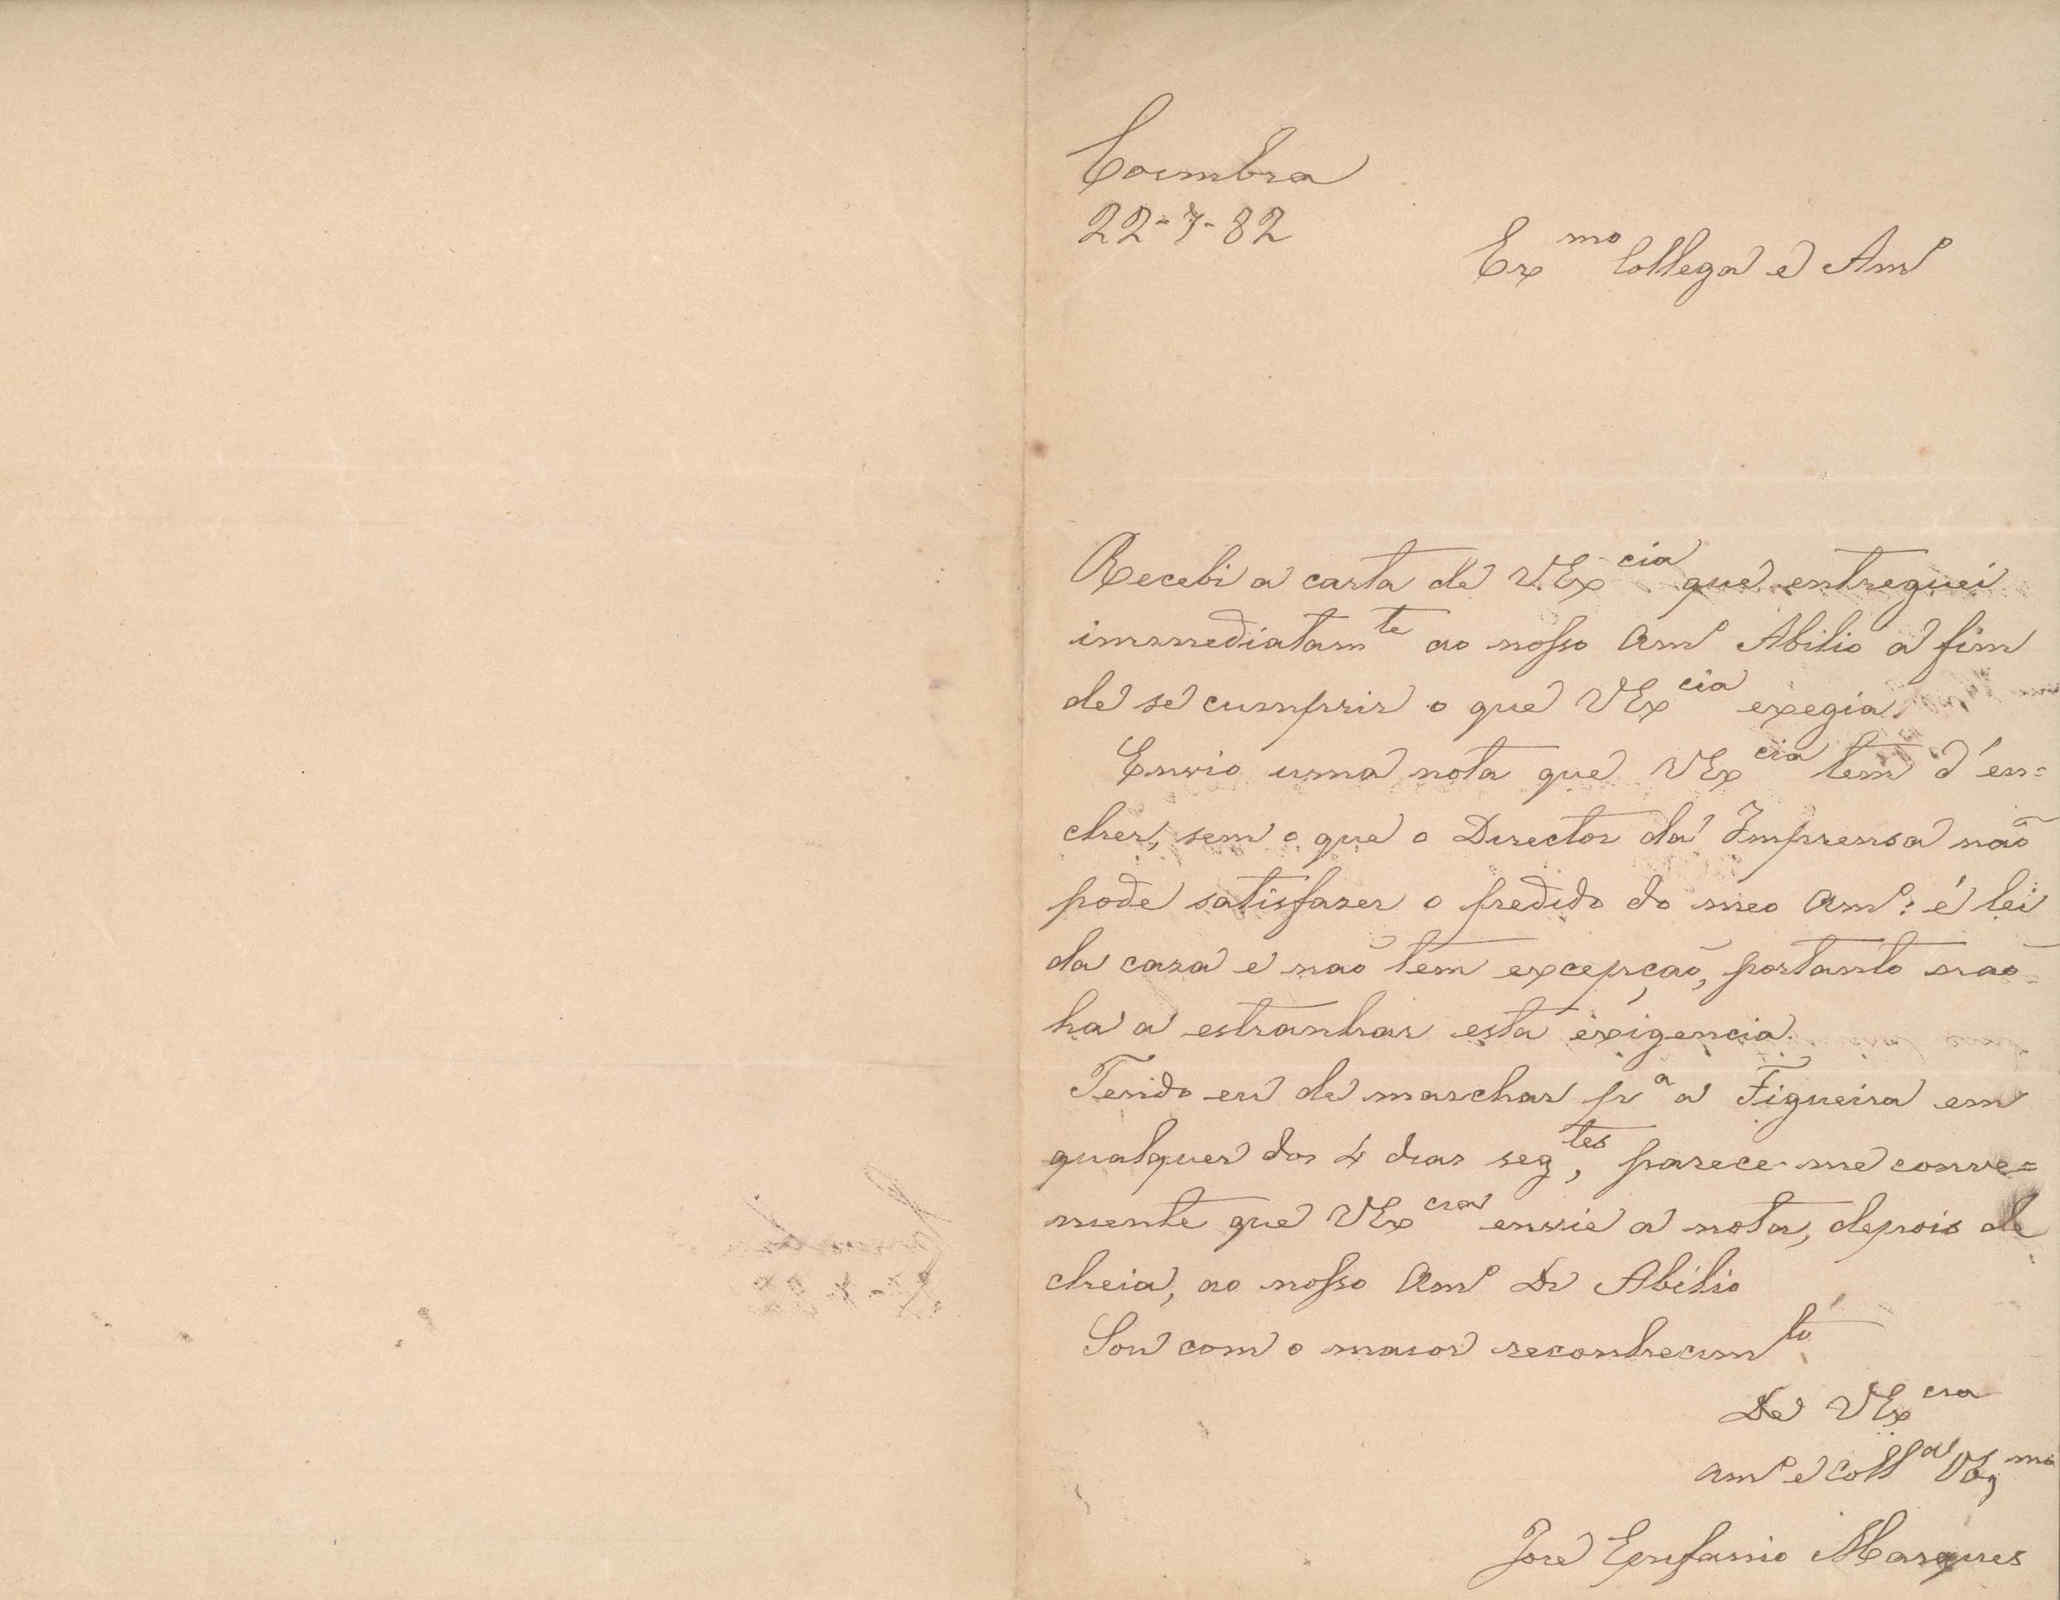 Coimbra
22-7-82
Exmo Collega e Amo
Recebi a carta de V.Excia que entreguei
immediatamte ao nosso Amo Abilio a fim
de se cumprir o que VExcia exegia.
Envio uma nota que VExcia tem d'en=
cher, sem o que o Director da Imprensa não
pode satisfazer o pedido do meo Amo: é lei
da caza e não tem excepção, portanto não
ha a estranhar esta exigencia.
Tendo eu de marchar pa a Figueira em
qualquer dos 4 dias segtes, parece-me conve=
niente que VExcia envie a nota, depois de
cheia, ao nosso Amo Dr Abilio
Sou com o maior reconhecimto
De VExcia
amo e colla Obgmo
José Epifanio Marques